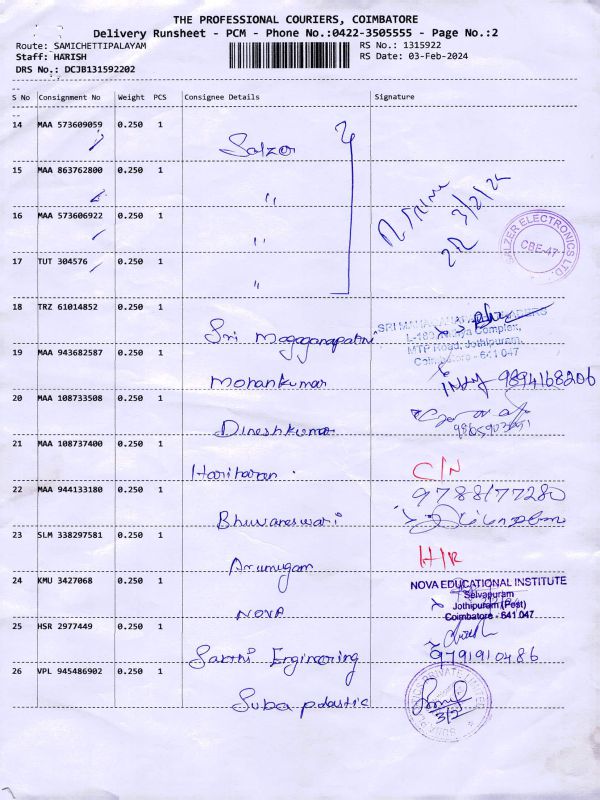 THE PROFESSIONAL COURIERS, COIMBATORE
Delivery Runsheet - PCM - Phone No.:0422-3505555 - Page No.:2
Route: SAMICHETTIPALAYAM RS No.: 1315922
Staff: HARISH RS Date: 03-Feb-2024
DRS No.: DCJB131592202
S No Consignment No Weight PCS Consignee Details Signature
14 MAA 573609059 0.250 1 Salzer
15 MAA 863762800 0.250 1 "
3/2/24
16 MAA 573606922 0.250 1 "
SALZER ELECTRONICS LTD.
CBE-47
17 TUT 304576 0.250 1 "
18 TRZ 61014852 0.250 1 Sri Magaganapatni
MTP Road, Jothipuram,
Coimbatore - 641 047
19 MAA 943682587 0.250 1 Mohankumar 9894168206
20 MAA 108733508 0.250 1 Dineshkumar
21 MAA 108737400 0.250 1 Hariharan C/N
22 MAA 944133180 0.250 1 Bhuvaneswari 9788177280
23 SLM 338297581 0.250 1 Arumugam H/R
24 KMU 3427068 0.250 1 NOVA
NOVA EDUCATIONAL INSTITUTE
Selvapuram
Jothipuram (Post)
Coimbatore - 641 047
25 HSR 2977449 0.250 1 Sakthi Engineering 9791910486
26 VPL 945486902 0.250 1 Suba plastic
3/2